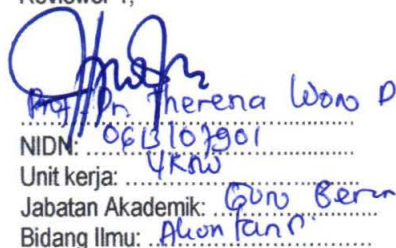 Reviewer 1,
Prof. Dr. Theresa Woro D
NIDN: 0613107901
Unit kerja: UKSW
Jabatan Akademik: Guru Besar
Bidang Ilmu: Akuntansi